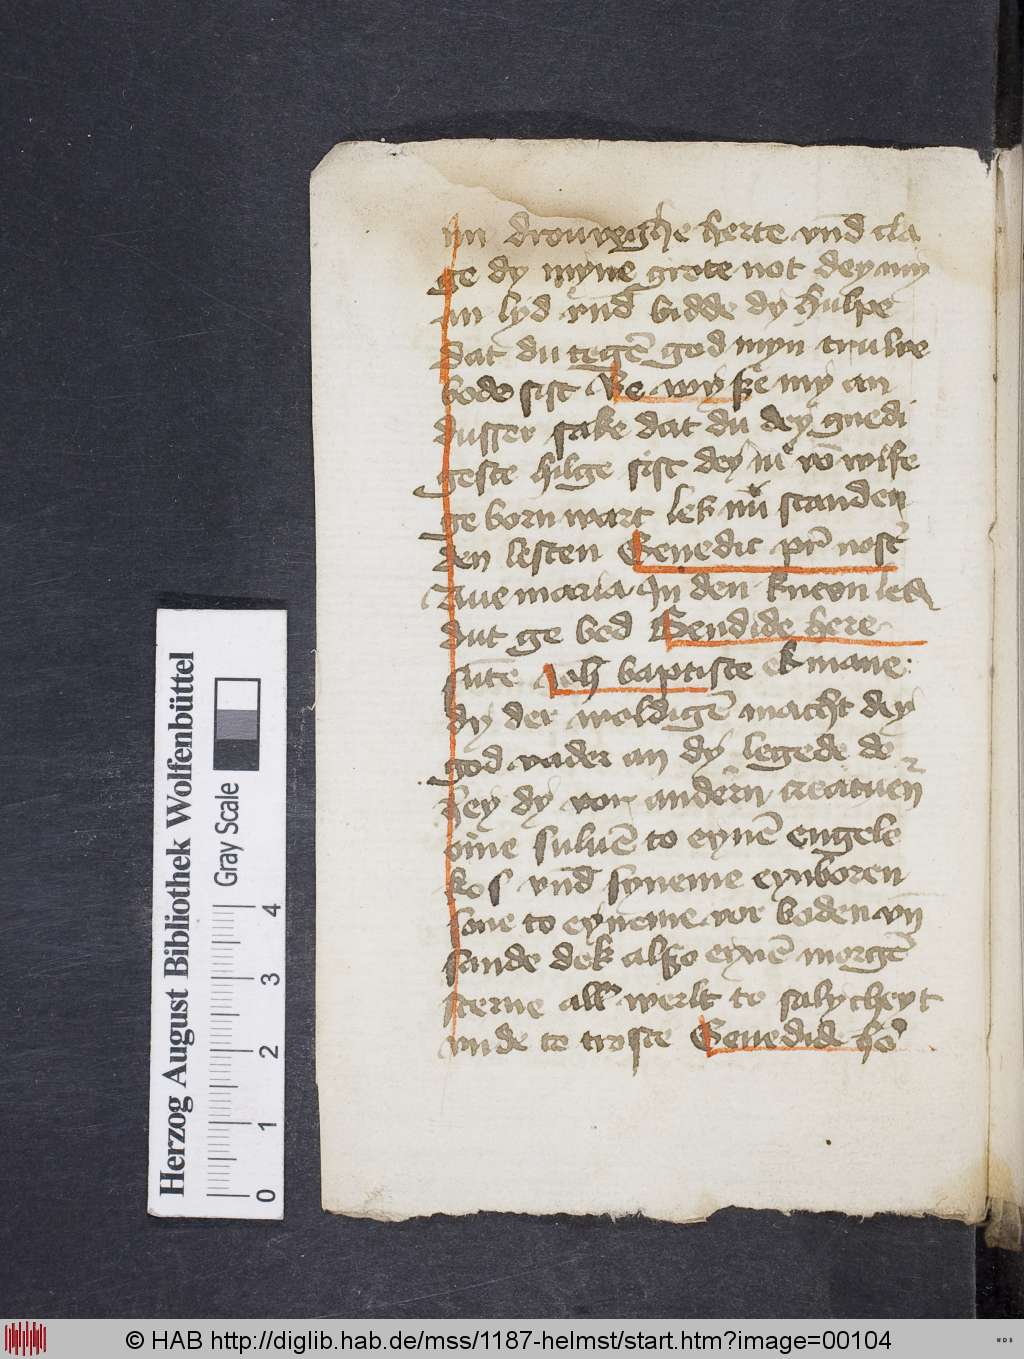 myn drouveghe herte vnd cla
ge dy myne grote not dey my
an lyd vnd bidde dy hulpe
dat du tegē god myn truwe
bode sist Be wyße my an
dusser sake dat du dey gnedi
geste hilge sist dey iu vō wife
ge born wart lek nu standen
den lesten Benedic pr̄ nost̄
Aue maria In den kneyn lek
dut ge bed Benedide here
sūte Joh baptiste ek mane
dy der woldigē macht dey
god vader an dy legede do
hey dy vor andern creaturē
ome suluē to eynē engele
kos vnd syneme eynboren
sone to eyneme vor boden vn̄
sande dek alßo eynē morgē
sterne all werlt to salycheyt
vnde to troste Benedide he
Herzog August Bibliothek Wolfenbüttel
Gray Scale
0 1 2 3 4
© HAB http://diglib.hab.de/mss/1187-helmst/start.htm?image=00104